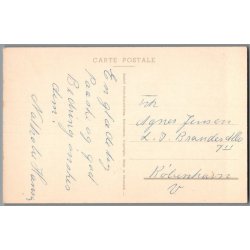 CARTE POSTALE
En glædelig
Paaske og god
Bedring ønskes
dem!
Frk
Agnes Jensen
L. I. Brandes Alle
København
V